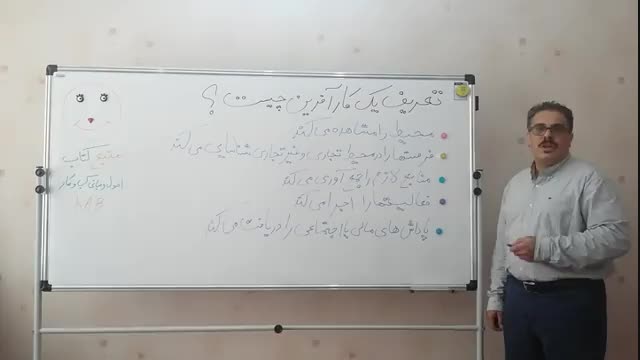 تعریف یک کارآفرین چیست ؟
محیط را مشاهده می کند
فرصتها را در محیط تجاری و غیر تجاری شناسایی می کند
منابع لازم را جمع آوری می کند
فعالیتها را اجرا می کند
پاداش های مالی یا اجتماعی را دریافت می کند
منبع کتاب
اصول و مبانی